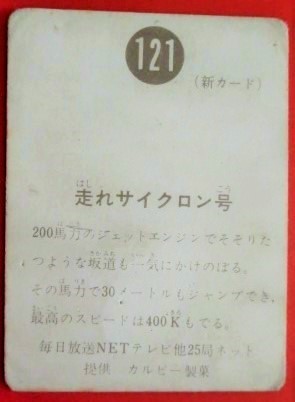 121
(新カード)
走れサイクロン号
200馬力のジェットエンジンでそそりた
つような坂道も一気にかけのぼる。
その馬力で30メートルもジャンプでき、
最高のスピードは400Kもでる。
毎日放送NETテレビ他25局ネット
提供 カルビー製菓